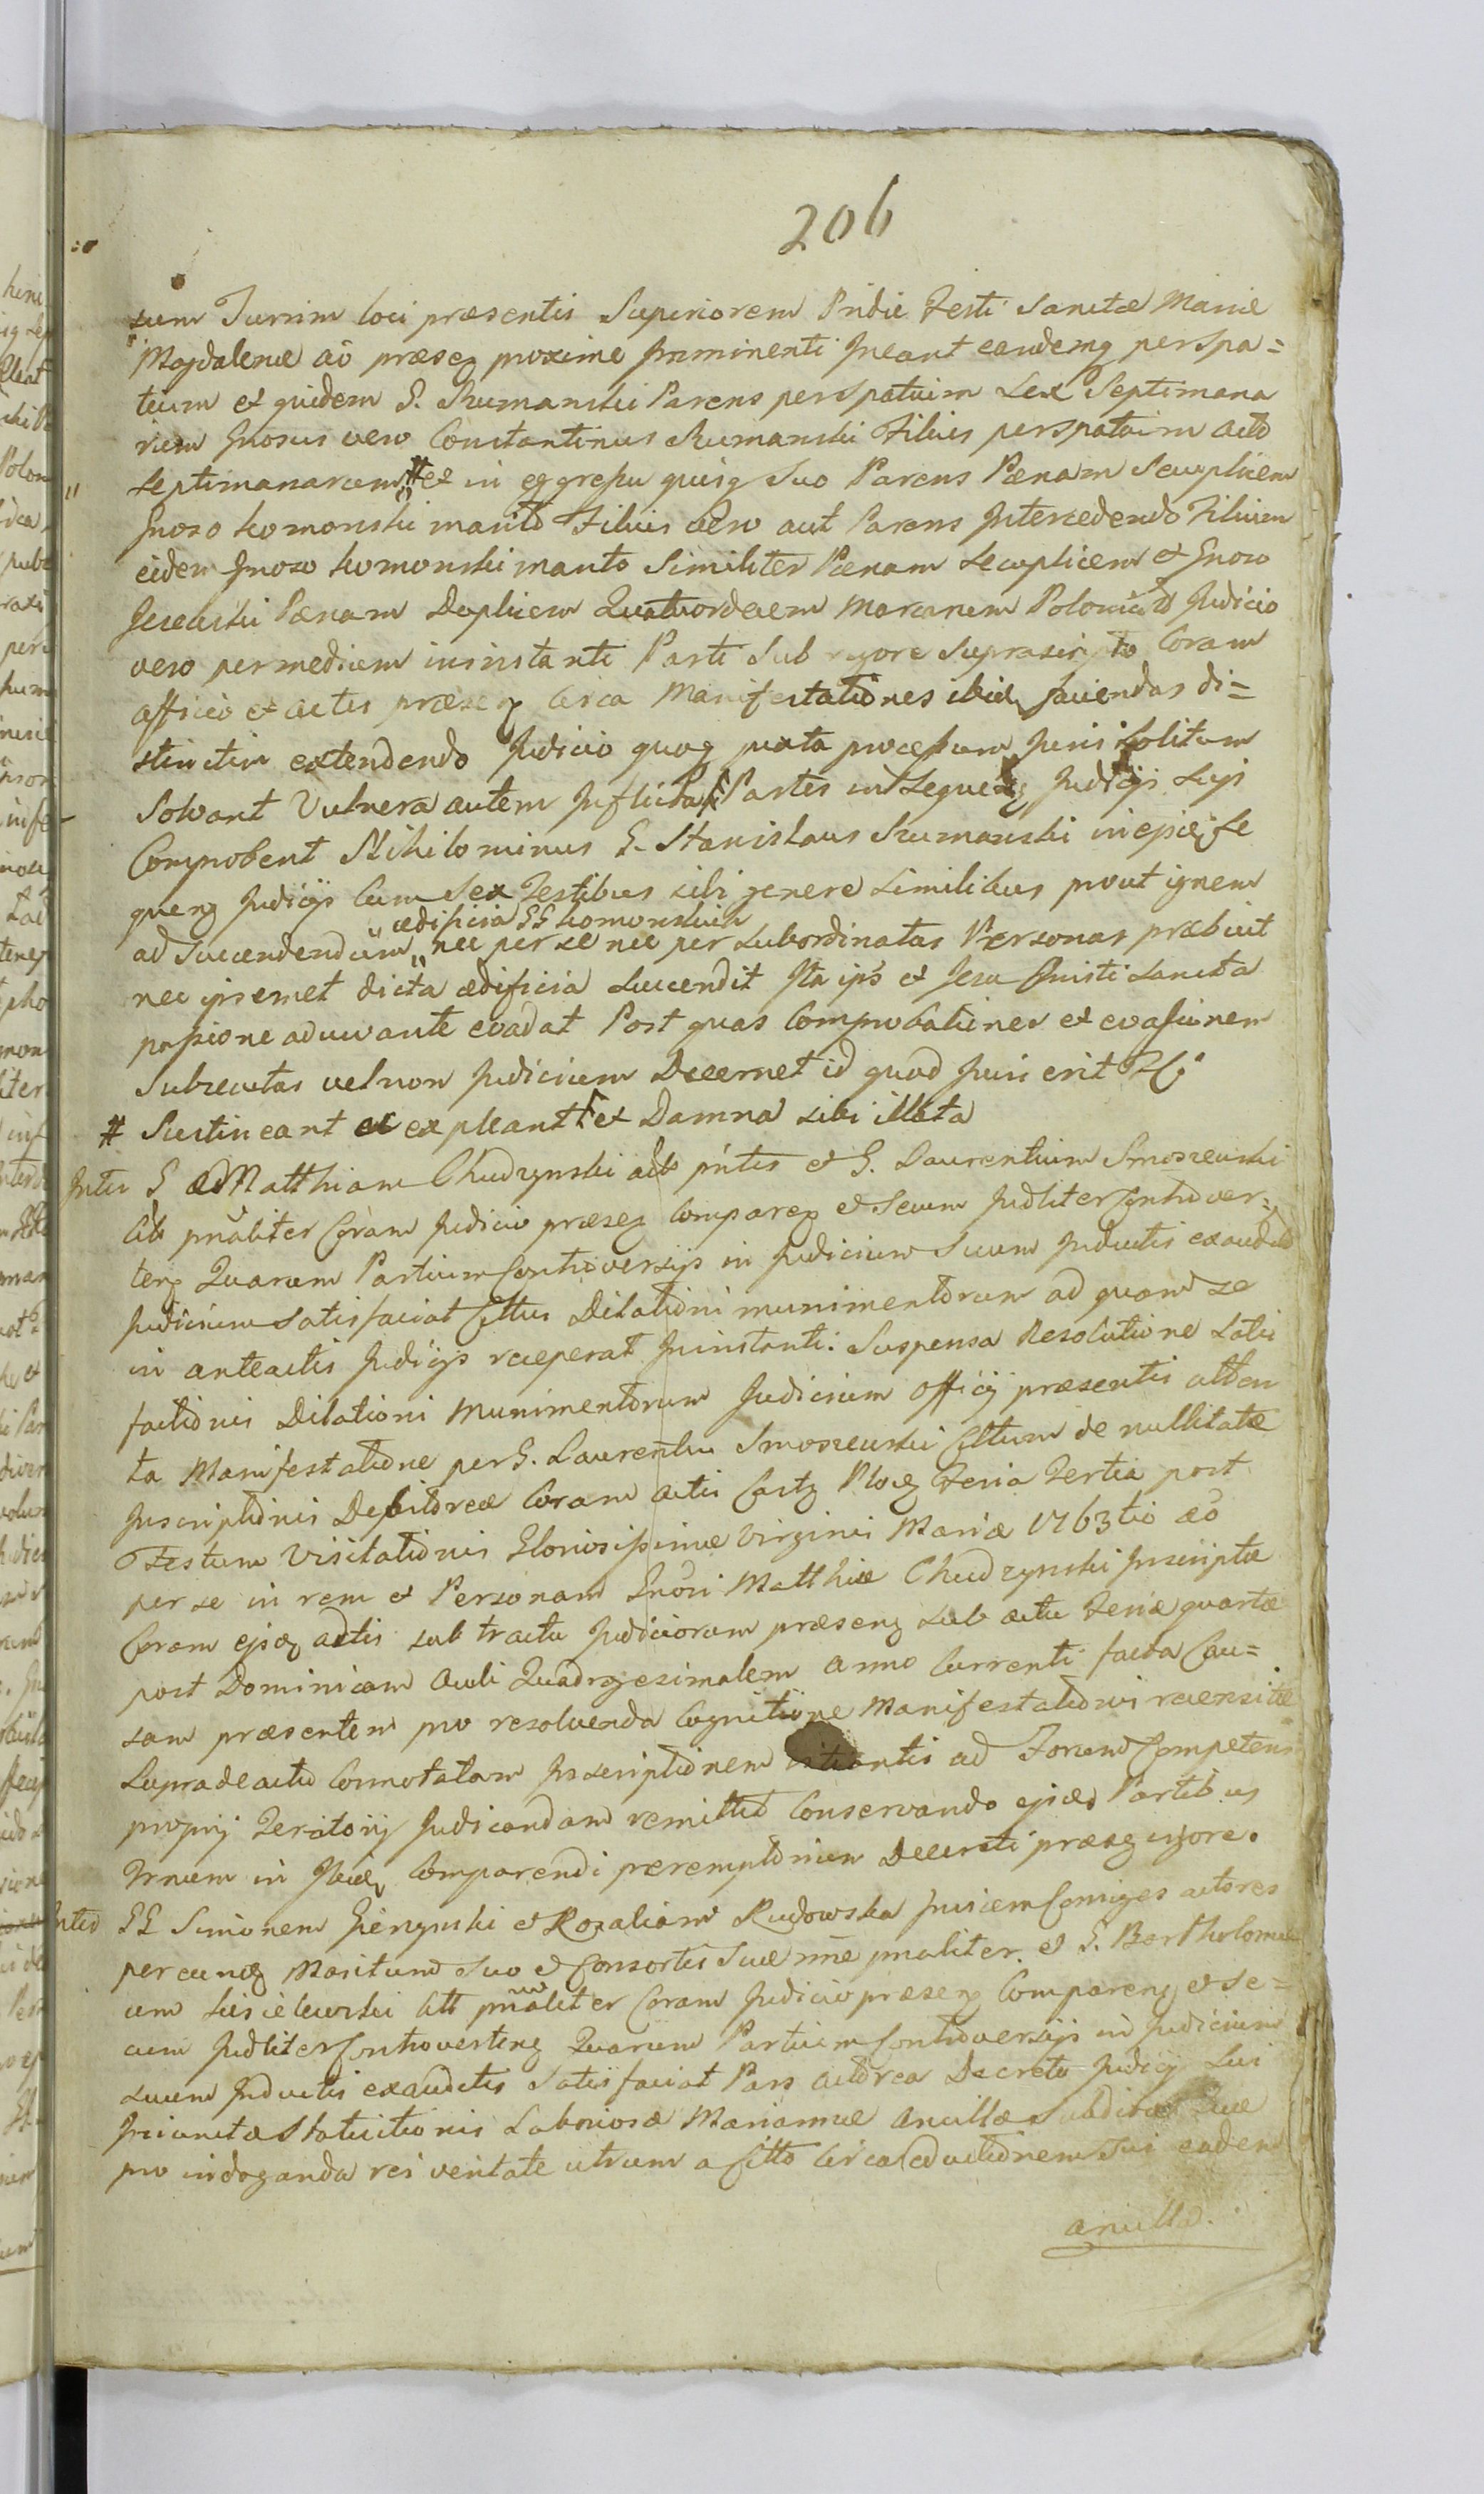 206
suam Turrim loci præsentis Superiorem Pridie Festi Sanctæ Mariæ
Magdalenæ ao præseq proxime Imminenti Ineant eandemq per spa=
tium et quidem G. Szumanski Parens per spatium Sex Septimana
rum Gnosus vero Constantinus Szumanski Filius per spatium acto
Septimanarum # et in eggressu quisq Suo Parens Pænam Seuplicem
Gnoso Komonski marito Filius vero aut Parens Intercedendo Filium
eidem Gnoso Komonski marito Similiter Pænam Seuplicem et Gnoso
Pænam Duplicem Quatuordecem Marcarum Judicio
vero per mediem insinstanti Parti Sub rigore Suprascripto Coram
officio et actis præseq Circa Manifestationes ibidq faciendas di=
stinctim extendendo Judicio quoq juxta processum Juris Solitum
Solvant Vulnera autem Inflicta Partes in Sequenq Judicijs Suis
Comprobent Nihilominus G. Stanislaus Szumanski in Se
quenq Judicijs Cum Sex Testibus sibi genere Similibus prout ignem
ad Succendendum „ nec per se nec per Subordinatas Personas præbuit
„ ædificia GG Komonskich
nec ipsemet dicta ædificia Succendit Ita ips et Jesu Christi Sancta
passione adiuvante evadat Post quas Comprobationes et evasionem
Subsecutas vel non Judicium Decernet id quod Juri erit
# Sustineant et expleant et Damna sibi illata
Inter G Matthiam Chudzynski actt pntes et G. Laurentium Smoszewski
Citt pnaliter Coram Judicio præseq Compareq et Secum Judliter Controver=
tenq Quarum Partium Controversijs in Judicium Suum Inductis exauditis
Judicium Satisfaciat Cittus Dilationi munimentorum ad quam se
in anteactis Judicijs receperat Juinstanti: Suspensa Resolutione Satis
factionis Dilationi Munimentorum Judicium Officij præsentis atten
ta Manifestatione per G. Laurentium Smoszewski Cittum de nullitate
Inscriptionis Debitoreæ Coram actis Castq Plocq Feria Tertia post
Festum Visitationis Gloriosissimæ Virginis Mariæ 1763tio ao
per se in rem et Personam Gnosi Matthiæ Chudzynski Inscriptæ
Coram actis sub tractu Judiciorum præsenq sub actu Feriæ quartæ
post Dominicam Oculi Quadragesimalem anno Currenti facta Cau=
sam præsentem pro resolvenda Cognitione Manifestationi recensitæ
Supra de actu Connotatam Inscriptionem ad Forum Competens
proprij Teritorij Judicandam remittit Conservando Partibus
Trnum in Comparendi peremptorium Decreti præseq vigore.
Inter GG Simonem Gierynski et Rozaliam Rudowska Invicem Conjuges actores
per eundq Maritum Suo et Consortis Suæ nne pnaliter et G. Bartholomæ
um Citt pnaliter Coram Judicio præseq Comparenq et Se=
cum Judliter Controvertenq Quarum Partium Controversijs in Judicium
Suum Inductis exauditis Satisfaciat Pars actorea Decreto Judicij Sui
Iniunctæ Statuitionis Laboriosæ Mariannæ Ancillæ Subditæ Suæ
pro indaganda rei veritate utrum a Citto Circa Sui eadem
ancilla.